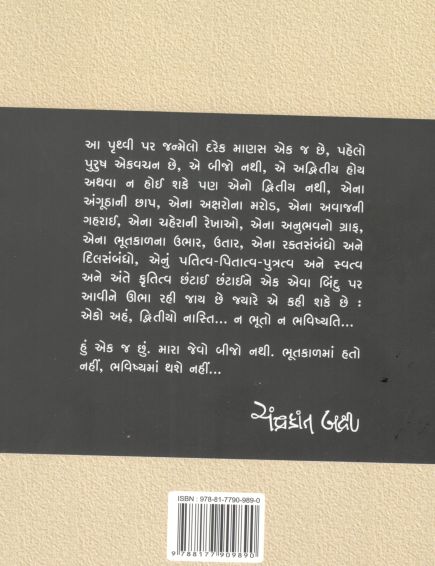 આ પૃથ્વી પર જન્મેલો દરેક માણસ એક જ છે, પહેલો
પુરુષ એકવચન છે, એ બીજો નથી, એ અદ્વિતીય હોય
અથવા ન હોઈ શકે પણ એનો દ્વિતીય નથી, એના
અંગૂઠાની છાપ, એના અક્ષરોના મરોડ, એના અવાજની
ગહરાઈ, એના ચહેરાની રેખાઓ, એના અનુભવનો ગ્રાફ,
એના ભૂતકાળના ઉભાર, ઉતાર, એના રક્તસંબંધો અને
દિલસંબંધો, એનું પતિત્વ-પિતાત્વ-પુત્રત્વ અને સ્વત્વ
અને અંતે કૃતિત્વ છંટાઈ છંટાઈને એક એવા બિંદુ પર
આવીને ઊભા રહી જાય છે જ્યારે એ કહી શકે છે :
એકો અહં, દ્વિતીયો નાસ્તિ... ન ભૂતો ન ભવિષ્યતિ...
હું એક જ છું. મારા જેવો બીજો નથી. ભૂતકાળમાં હતો
નહીં, ભવિષ્યમાં થશે નહીં...
ચંદ્રકાંત બક્ષી
ISBN : 978-81-7790-989-0
9 788177 909890